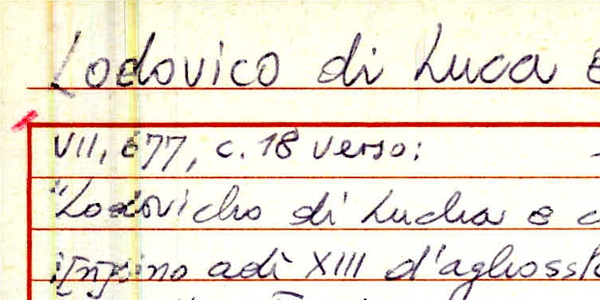 Lodovico di Luca e
VII, 677, c. 18 verso:
"Lodovicho di Lucha e
i[n]sino adì XIII d'aghossto